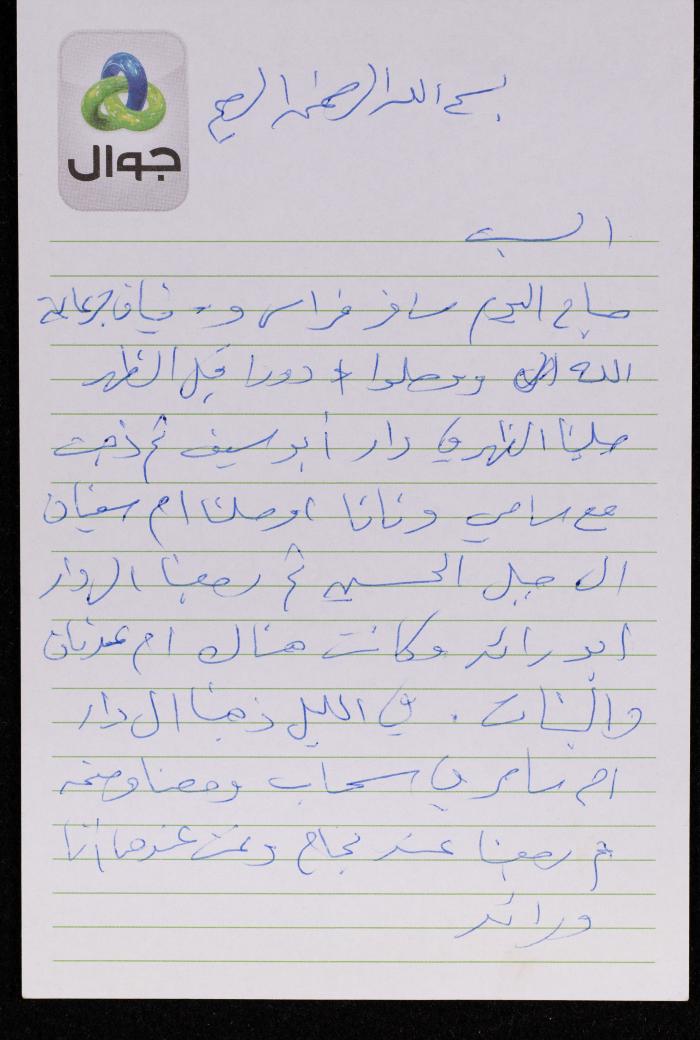 بسم الله الرحمن الرحيم
جوال
السبت
صباح اليوم سافر فراس و
الله ووصلوا دورا قبل الظهر
صلينا الظهر في دار أبو سيف ثم ذهبت
مع سامي ودنانا اوصلنا ام سفيان
الى جبل الحسين ثم رجعنا الى دار
ابو رائد وكانت هناك ام عدنان
والبنات . في الليل ذهبنا الى دار
ام سامر في سحاب
ثم رجعنا عند نجاح ونمت عندها انا
ورائد